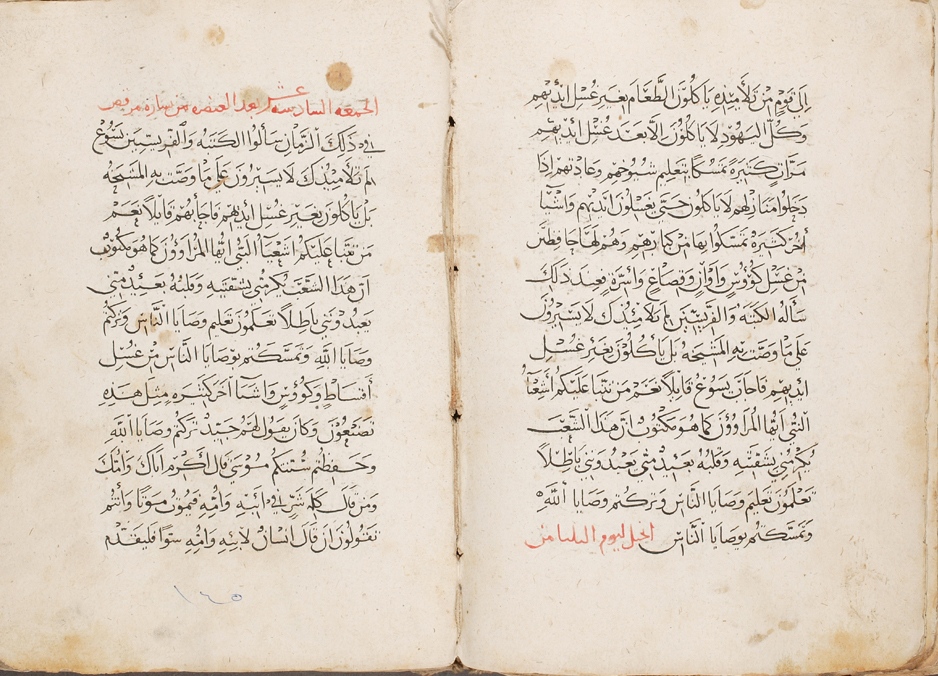 إلى قوم من تلاميذه ياكلون الطعام بغير غسل ايديهم
وكل اليهود لا ياكلون الا بعد غسل ايديهم
مرات كثيرة تمسكا بتعليم شيوخهم وعادتهم اذا
دخلوا منازلهم لا ياكلون حتى يغسلون ايديهم واشيا
اخر كثيره تمسكوا بها من كبارهم وهم لها حافظين
من غسل كووس واواني وقصاع واسرة فعند ذلك
سأله الكتبه والفريسيين لم تلاميذك لا يسيرون
على ما وصت به المشيخه بل ياكلون بغير غسل
ايديهم فاجاب يسوع قايلا نعم من نتبا عليكم اشعيا
النبي ايها المراوون كما هو مكتوب ان هذا الشعب
يكرمني بشفتيه وقلبه بعيد مني يعبدونني باطلا
تعلمون تعليم وصايا الناس وتركتم وصايا الله
وتمسكتم بوصايا الناس انجيل ليوم الثلثا من
الجمعه السادسه عشر بعد العنصره من بشاره مرقص
في ذلك الزمان سألوا الكتبه والفريسيين يسوع
لم تلاميذك لا يسيرون على ما وصت به المشيخه
بل ياكلون بغير غسل ايديهم فاجابهم قايلا نعم
من نتبا عليكم اشعيا النبي ايها المراوون كما هو مكتوب
ان هذا الشعب يكرمني بشفتيه وقلبه بعيد مني
يعبدونني باطلا تعلمون تعليم وصايا الناس وتركتم
وصايا الله وتمسكتم بوصايا الناس من غسل
أقساط وكووس واشيا اخر كثيره مثل هذه
تصنعون وكان يقول لهم جيد تركتم وصايا الله
وحفظتم سنتكم موسى قال اكرم اباك وامك
ومن قال كلمة شر في ابيه وامه فيموت موتا وانتم
تقولون ان قال انسان لابيه وامه سوا فليقدم
١٤٥